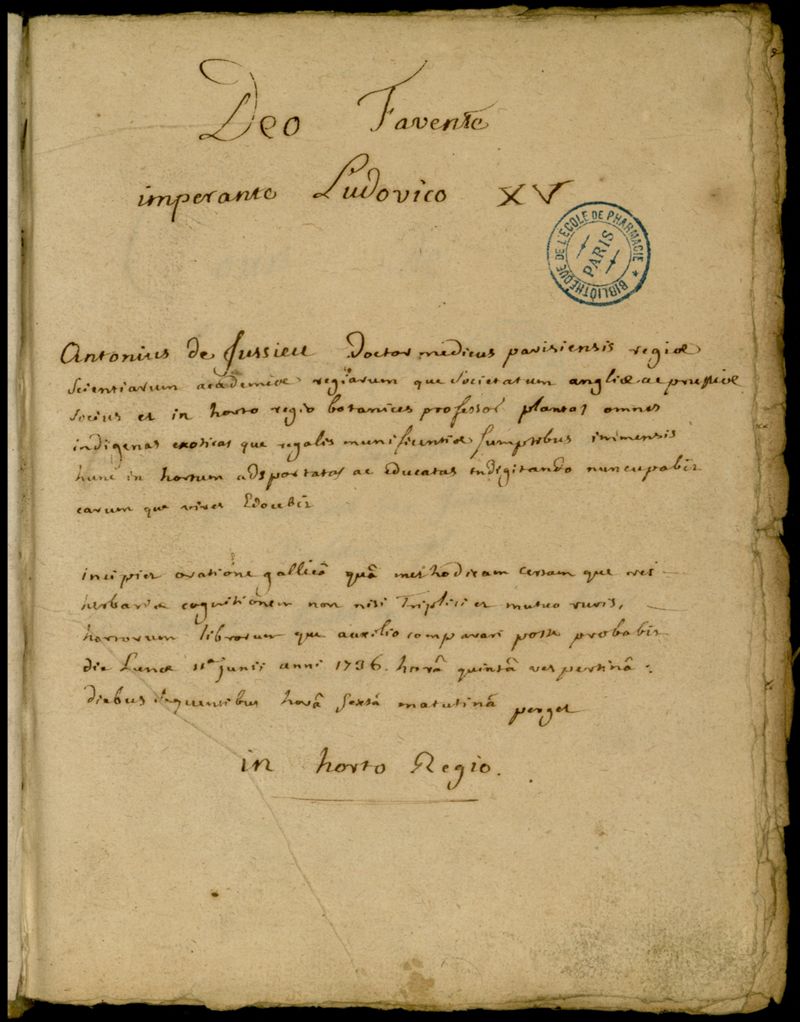 Deo Favente
imperante Ludovico XV
BIBLIOTHEQUE DE L'ECOLE DE PHARMACIE * PARIS
Antonius de Jussieu Doctor medicus parisiensis regiæ
scientiarum academiæ regiarum que societatum angliæ ac prussiæ
socius et in horto regio botanices professor plantas omnes
indigenas exoticas que regalis munificentiæ sumptibus immensis
hunc in hortum adsportatas ac educatas indigitando nuncupabit
earum que vires Edocebit
incipiet oratione gallicâ quâ methodicam certam que rei
herbariæ cognitionem non nisi Triplici et mutuo ruris,
hortorum librorum que auxilio comparari posse probabit
die Lunæ 11a junii anni 1736. horâ quintâ vespertinâ:
diebus sequentibus horâ sextâ matutinâ perget
in horto Regio.